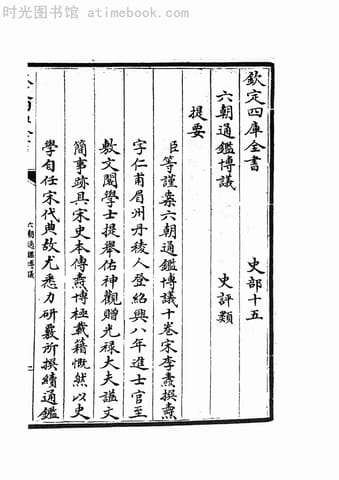 时光图书馆 - atimebook.com
欽定四庫全書　史部十五
六朝通鑑博議　史評類
提要
臣等謹案六朝通鑑博議十卷宋李燾撰燾
字仁甫眉州丹稜人登紹興八年進士官至
敷文閣學士提舉佑神觀贈光祿大夫諡文
簡事跡具宋史本傳燾博極載籍慨然以史
學自任宋代典故尤悉力研覈所撰續通鑑
六朝通鑑博議